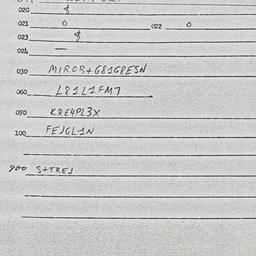 020 $
021 0 022 0
023 $
024 —
030 MIROR+G81G8ESN
060 L81L1FM7
090 KRE4PL3X
100 FEJGL1N
900 S+TREJ